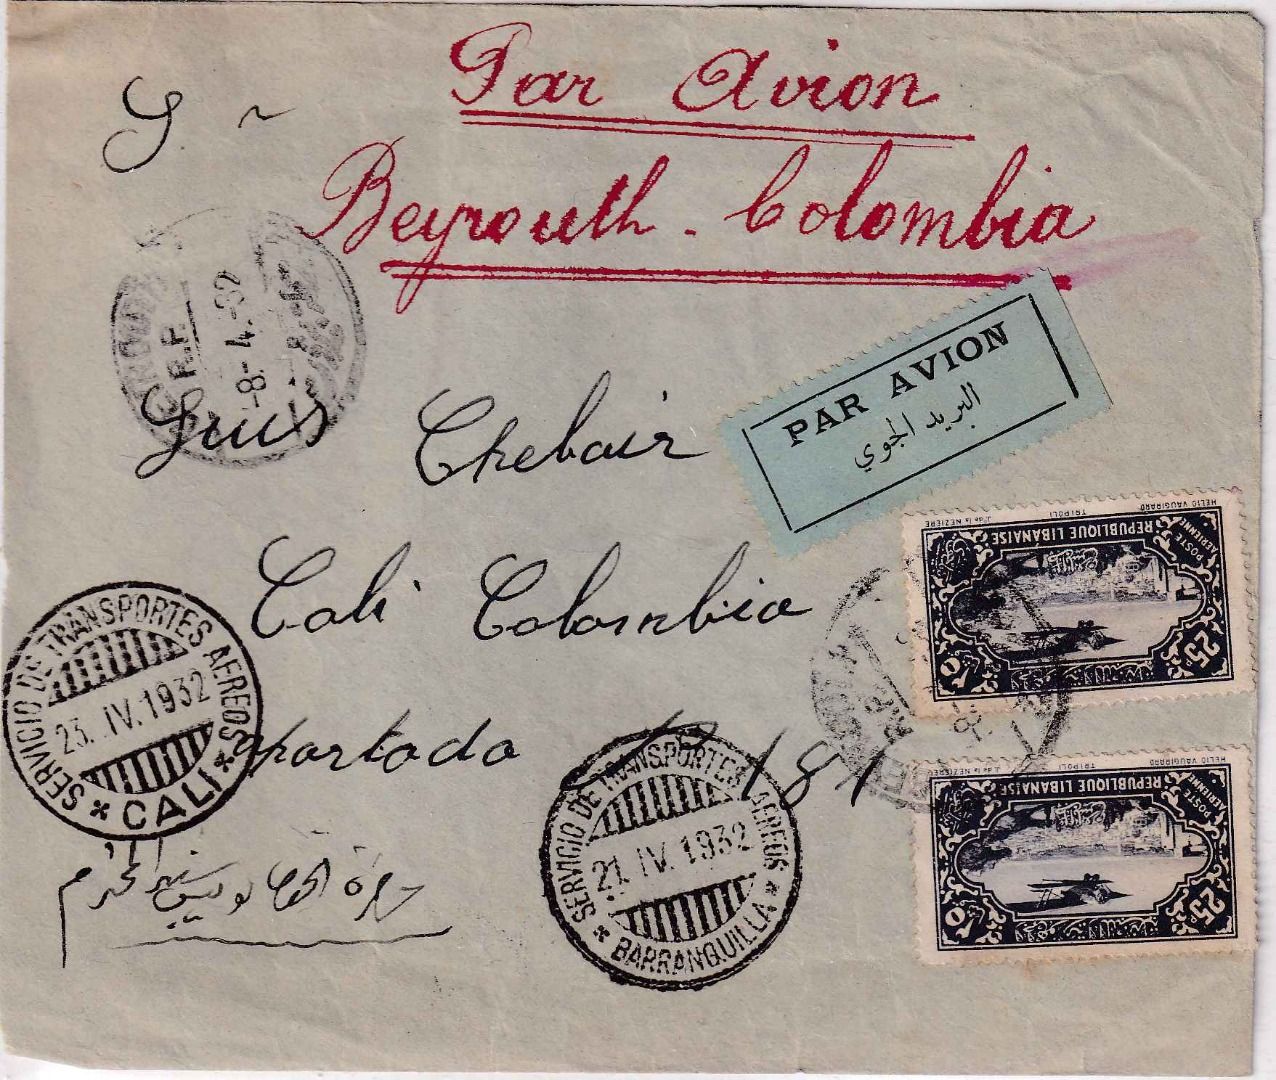 Par Avion
Beyrouth - Colombia
S
R.P.
-8-4.-32
Luis Chebair
PAR AVION
البريد الجوي
HELIO VAUGIRARD TRIPOLI J. de la NEZIERE
REPUBLIQUE LIBANAISE
POSTE AERIENNE
25P
Cali Colombia
SERVICIO DE TRANSPORTES AEREOS
23. IV. 1932
* CALI *
Apartado 181
SERVICIO DE TRANSPORTES AEREOS
21. IV. 1932
* BARRANQUILLA *
HELIO VAUGIRARD TRIPOLI J. de la NEZIERE
REPUBLIQUE LIBANAISE
POSTE AERIENNE
25P